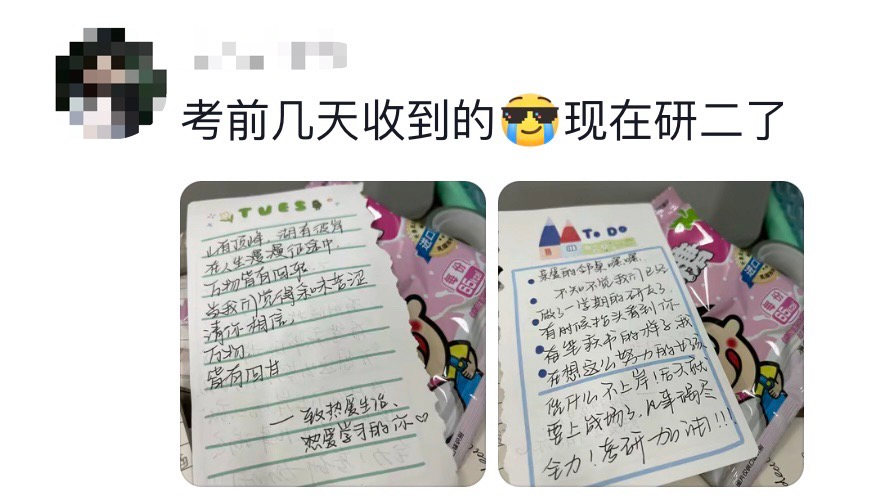 考前几天收到的😎现在研二了
TUES
山有顶峰，湖有彼岸
在人生漫漫征途中，
万物皆有回转
当我们觉得余味苦涩
请你相信，
万物，
皆有回甘
——致热爱生活、
热爱学习的你♡
To Do
亲爱的邻桌嘿嘿：
不知不觉我们已经
做了一学期的研友了
有时候抬头看到你
奋笔疾书的样子我
在想这么努力的女孩
凭什么不上岸！后天就
要上战场了，凡事竭尽
全力！考研加油!!!
进口
每份
进口
每份